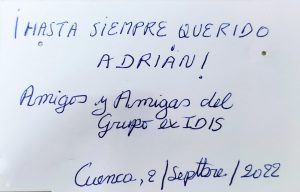 ¡HASTA SIEMPRE QUERIDO
ADRIÁN!
Amigos y Amigas del
Grupo ex IDIS
Cuenca, 2/Septbre/2022